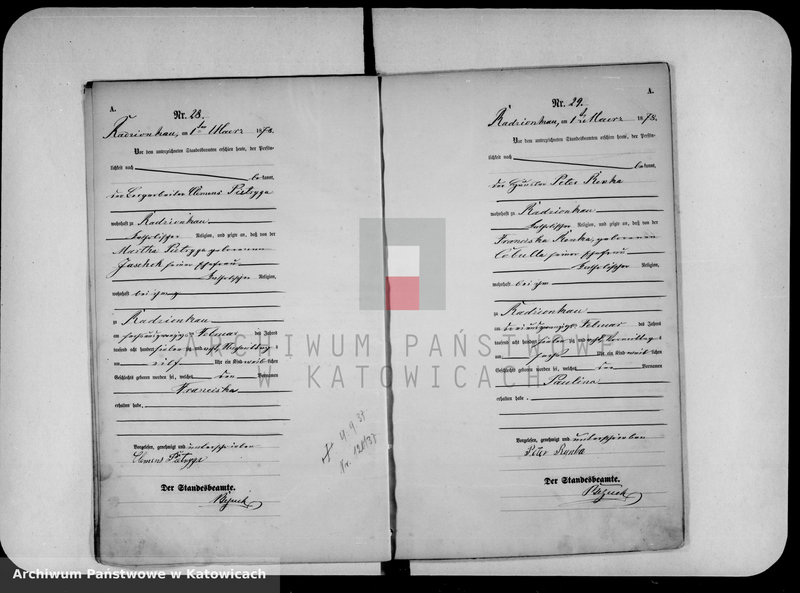 A.
Nr. 28.
Radzionkau, am 1ten Maerz 1878.
Vor dem unterzeichneten Standesbeamten erschien heute, der Persön-
lichkeit nach
bekannt,
der Bergarbeiter Clemens Pietryga
wohnhaft zu Radzionkau
katholischer Religion, und zeigte an, daß von der
Martha Pietryga geborenen
Jaschek seiner Ehefrau
katholischer Religion,
wohnhaft bei ihm
zu Radzionkau
am sechsundzwanzigsten Februar des Jahres
tausend acht hundert siebenzig und acht Vormittags
um elf Uhr ein Kind weiblichen
Geschlechts geboren worden sei, welches den Vornamen
Franciska
erhalten habe.
Vorgelesen, genehmigt und unterschrieben
Clemens Pietryga
Der Standesbeamte.
4.9.38
Nr.
A.
Nr. 29.
Radzionkau, am 1ten Maerz 1878.
Vor dem unterzeichneten Standesbeamten erschien heute, der Persön-
lichkeit nach
bekannt,
der Häusler Peter
wohnhaft zu Radzionkau
katholischer Religion, und zeigte an, daß von der
Franciska geborenen
Cebulla seiner Ehefrau
katholischer Religion,
wohnhaft bei ihm
zu Radzionkau
am dreiundzwanzigsten Februar des Jahres
tausend acht hundert siebenzig und acht Vormittags
um sechs Uhr ein Kind weiblichen
Geschlechts geboren worden sei, welches den Vornamen
Paulina
erhalten habe.
Vorgelesen, genehmigt und unterschrieben
Peter
Der Standesbeamte.
ARCHIWUM PAŃSTWOWE
W KATOWICACH
Archiwum Państwowe w Katowicach